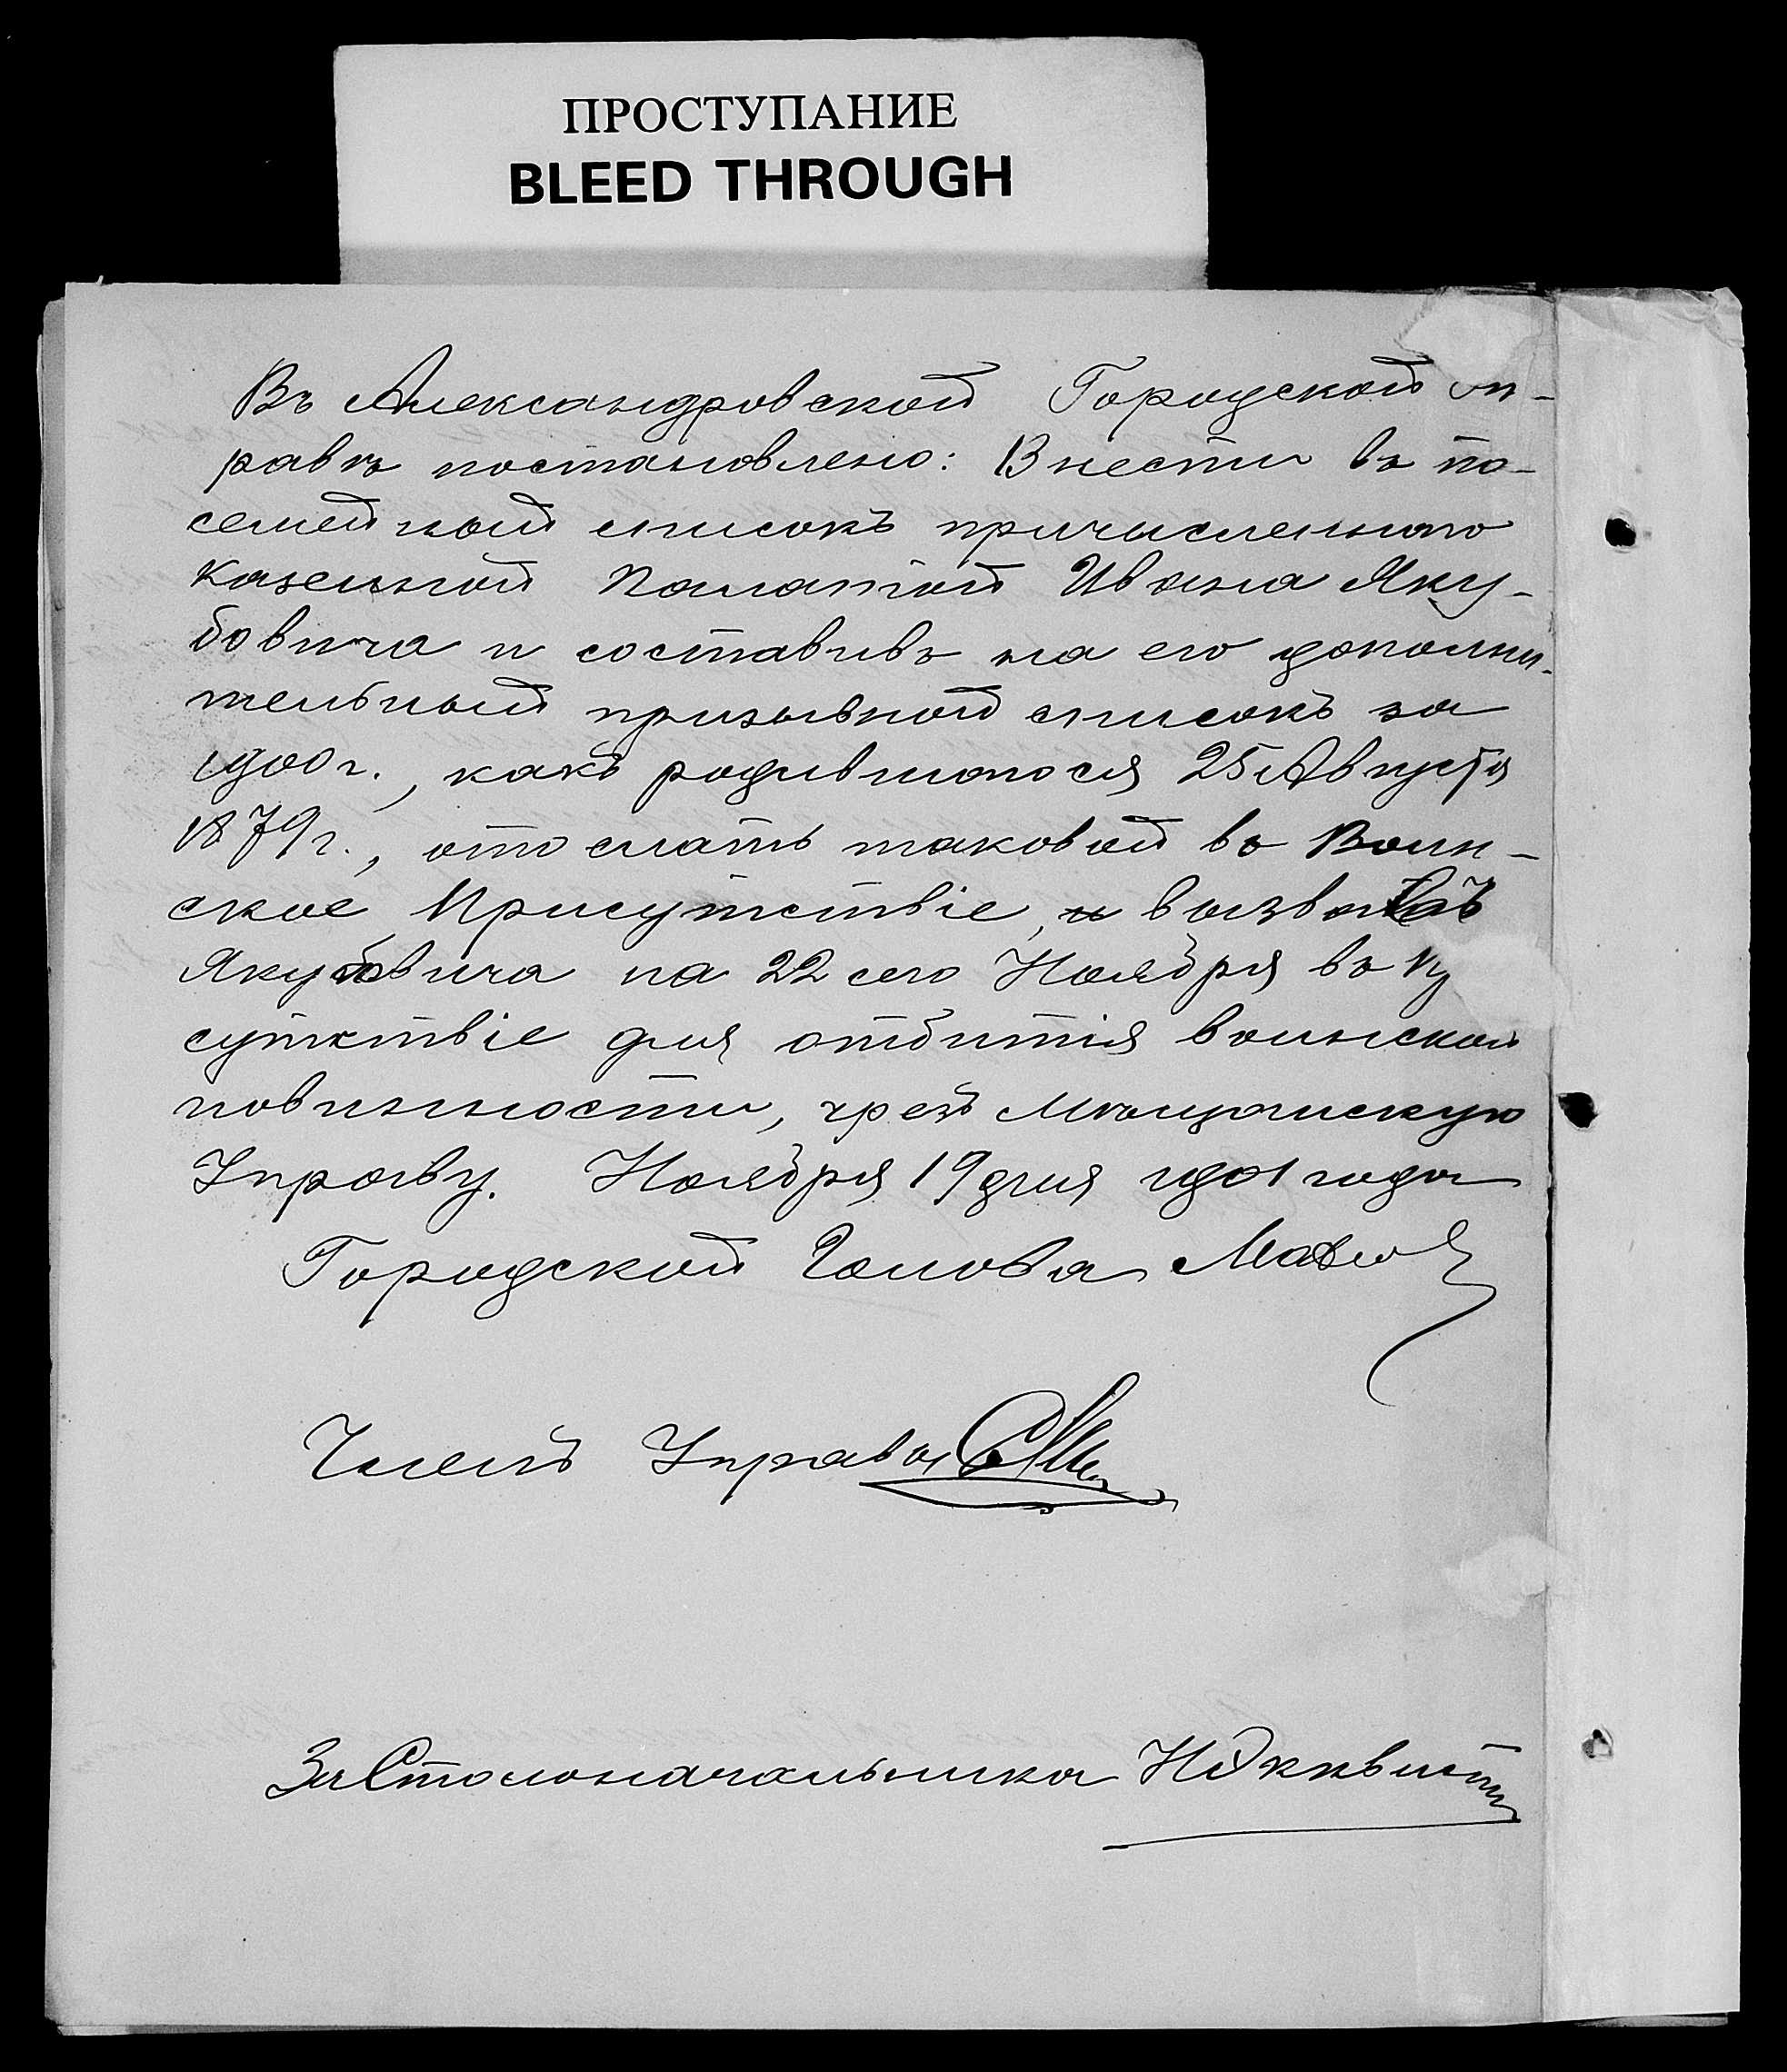 ПРОСТУПАНИЕ
BLEED THROUGH
Въ Александровской Городской Уп-
равѣ постановлено: Внести въ по-
семейный списокъ причисленнаго
Казенной Палатой Ивана Яку-
бовича и составивъ на его дополни-
тельный призывной списокъ за
1900 г., какъ родившагося 25 Августа
1879 г., отослать таковой въ Воин-
ское Присутствіе, и вызвавъ
Якубовича на 22 сего Ноября въ
сутствіе для отбытія воинской
повинности, чрезъ Мѣщанскую
Управу. Ноября 19 дня 1901 года
Городской Голова
Членъ Управы
За Столоначальника